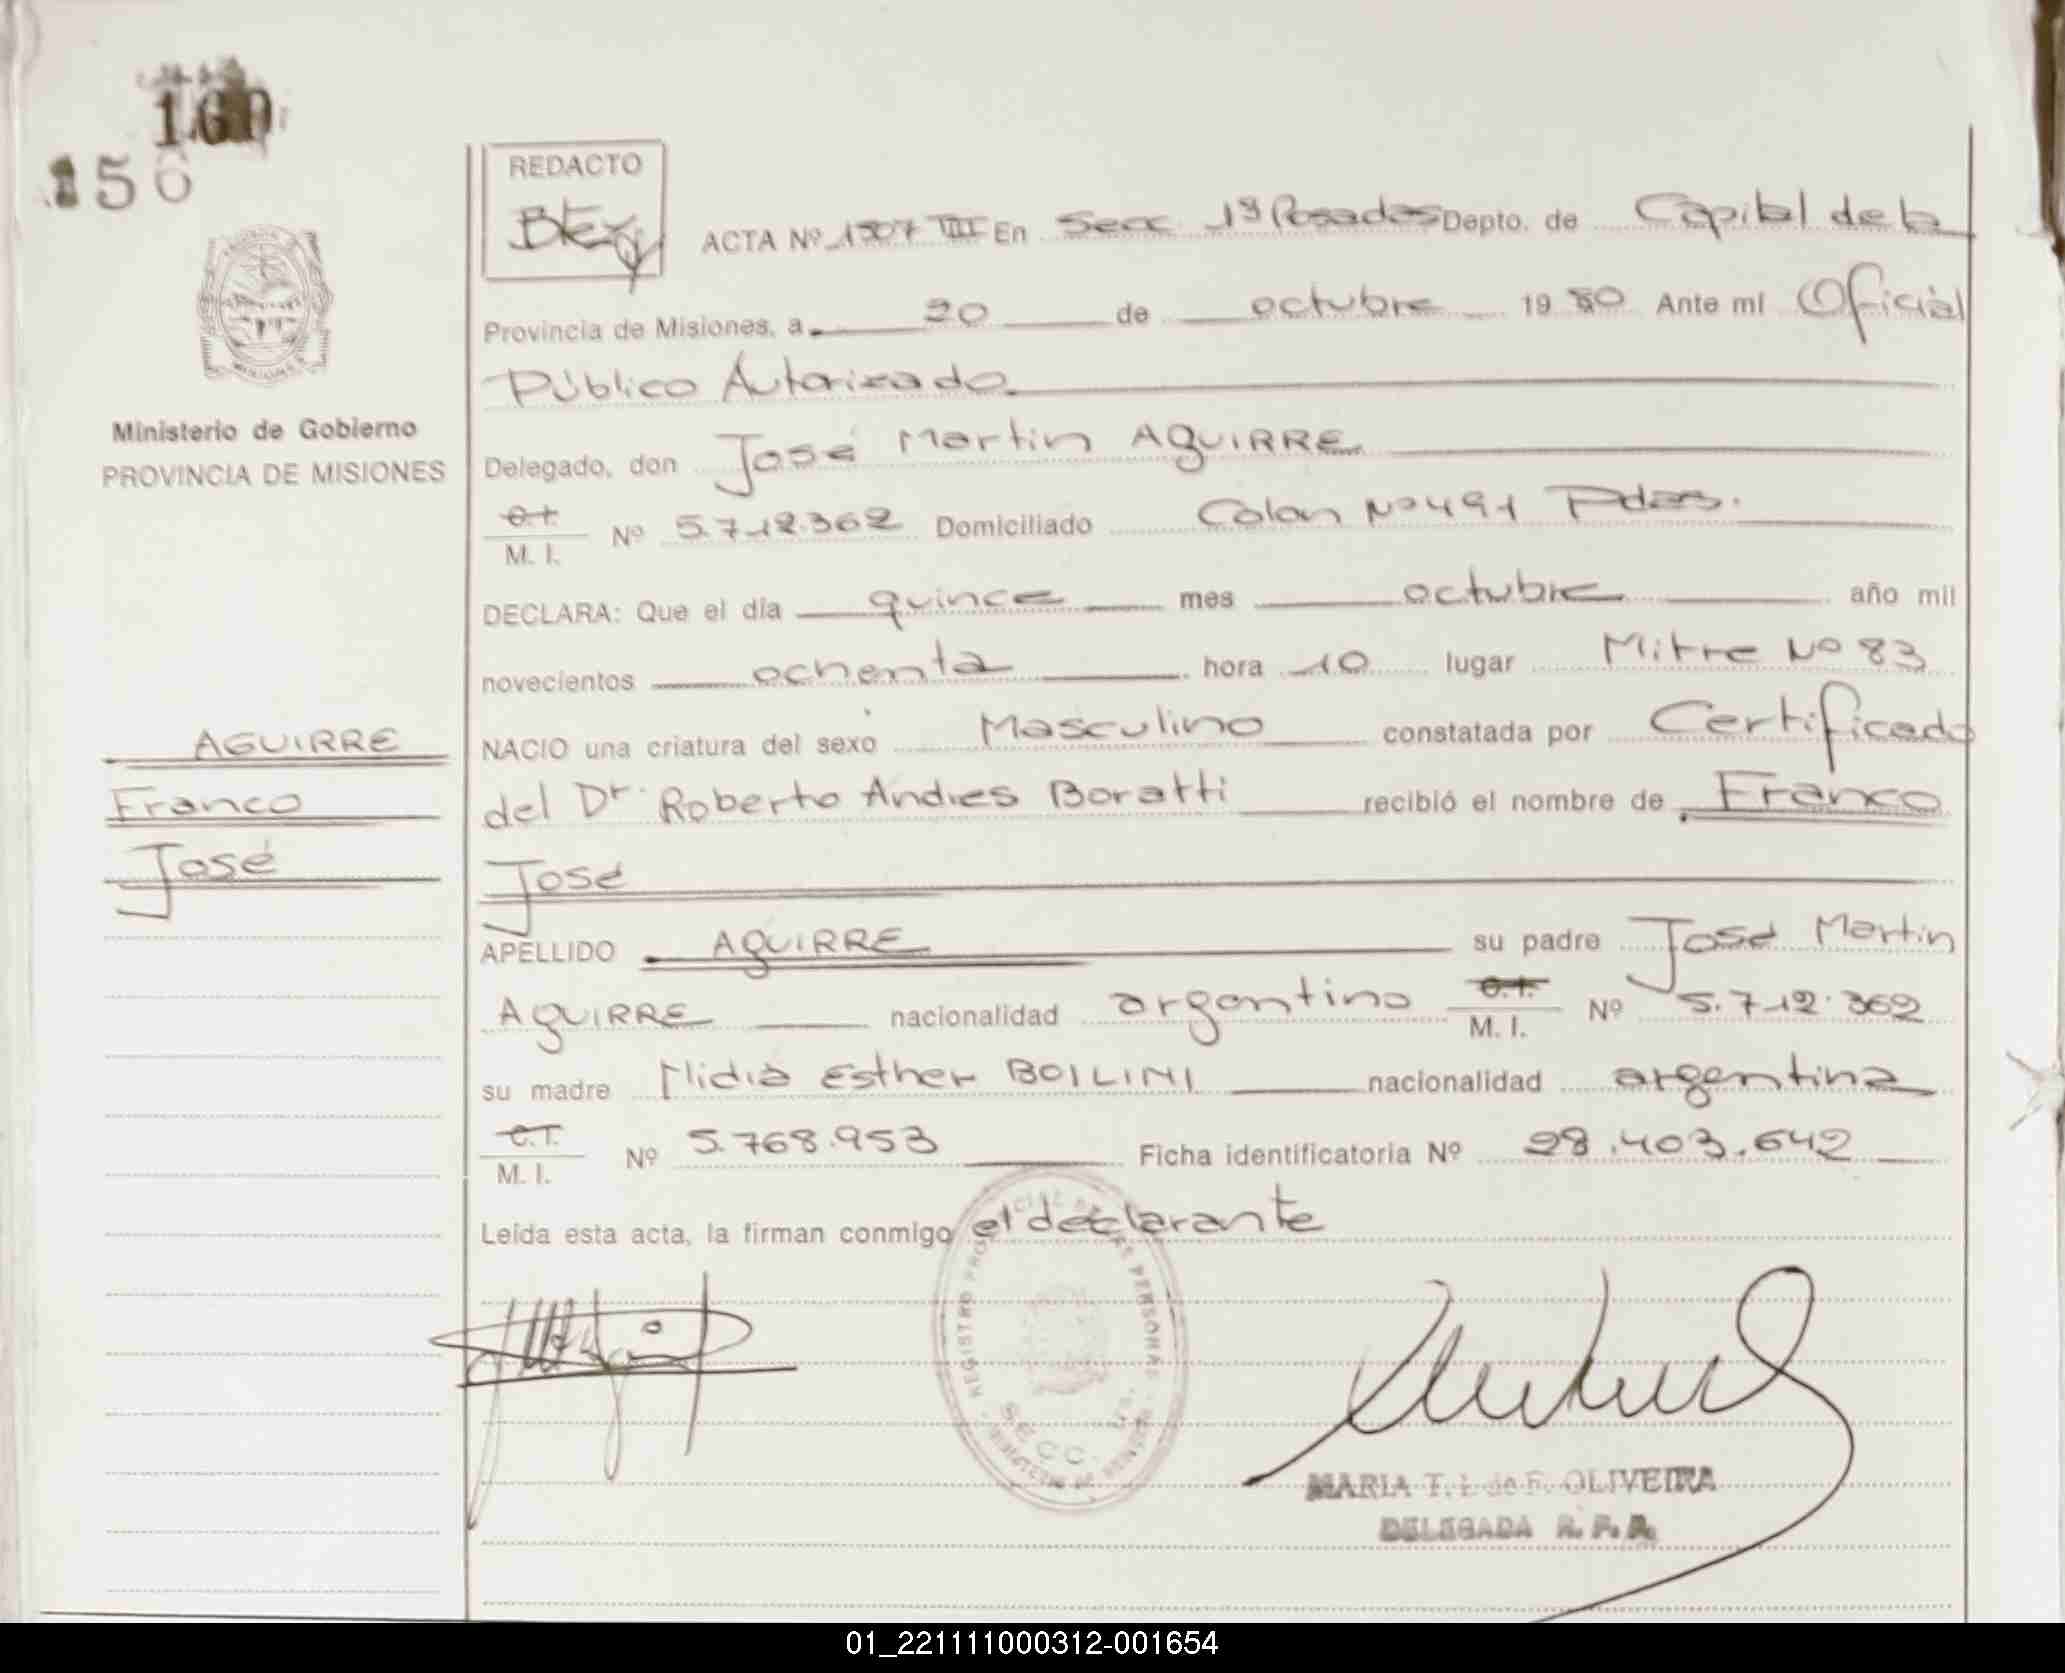 160
156
REDACTO
ACTA Nº 1507 VIII En Secc. 1ª Posadas Depto. de Capital de la
Provincia de Misiones, a 20 de octubre 1980 Ante mí Oficial
Público Autorizado
Ministerio de Gobierno
PROVINCIA DE MISIONES
Delegado, don José Martin AGUIRRE
C.I.
M. I. Nº 5.712.362 Domiciliado Colon Nº 491 Pdas.
DECLARA: Que el día quince mes octubre año mil
novecientos ochenta hora 10 lugar Mitre Nº 83
AGUIRRE
Franco
José
NACIO una criatura del sexo Masculino constatada por Certificado
del Dr. Roberto Andres Boratti recibió el nombre de Franco
José
APELLIDO AGUIRRE su padre José Martin
AGUIRRE nacionalidad argentino C.I. M. I. Nº 5.712.362
su madre Nidia Esther BOILINI nacionalidad argentina
C.I.
M. I. Nº 5.768.953 Ficha identificatoria Nº 28.403.642
Leída esta acta, la firman conmigo el declarante
REGISTRO PERSONAS
SECC.
MARIA T. de F. OLIVEIRA
DELEGADA R. P. P.
01_221111000312-001654